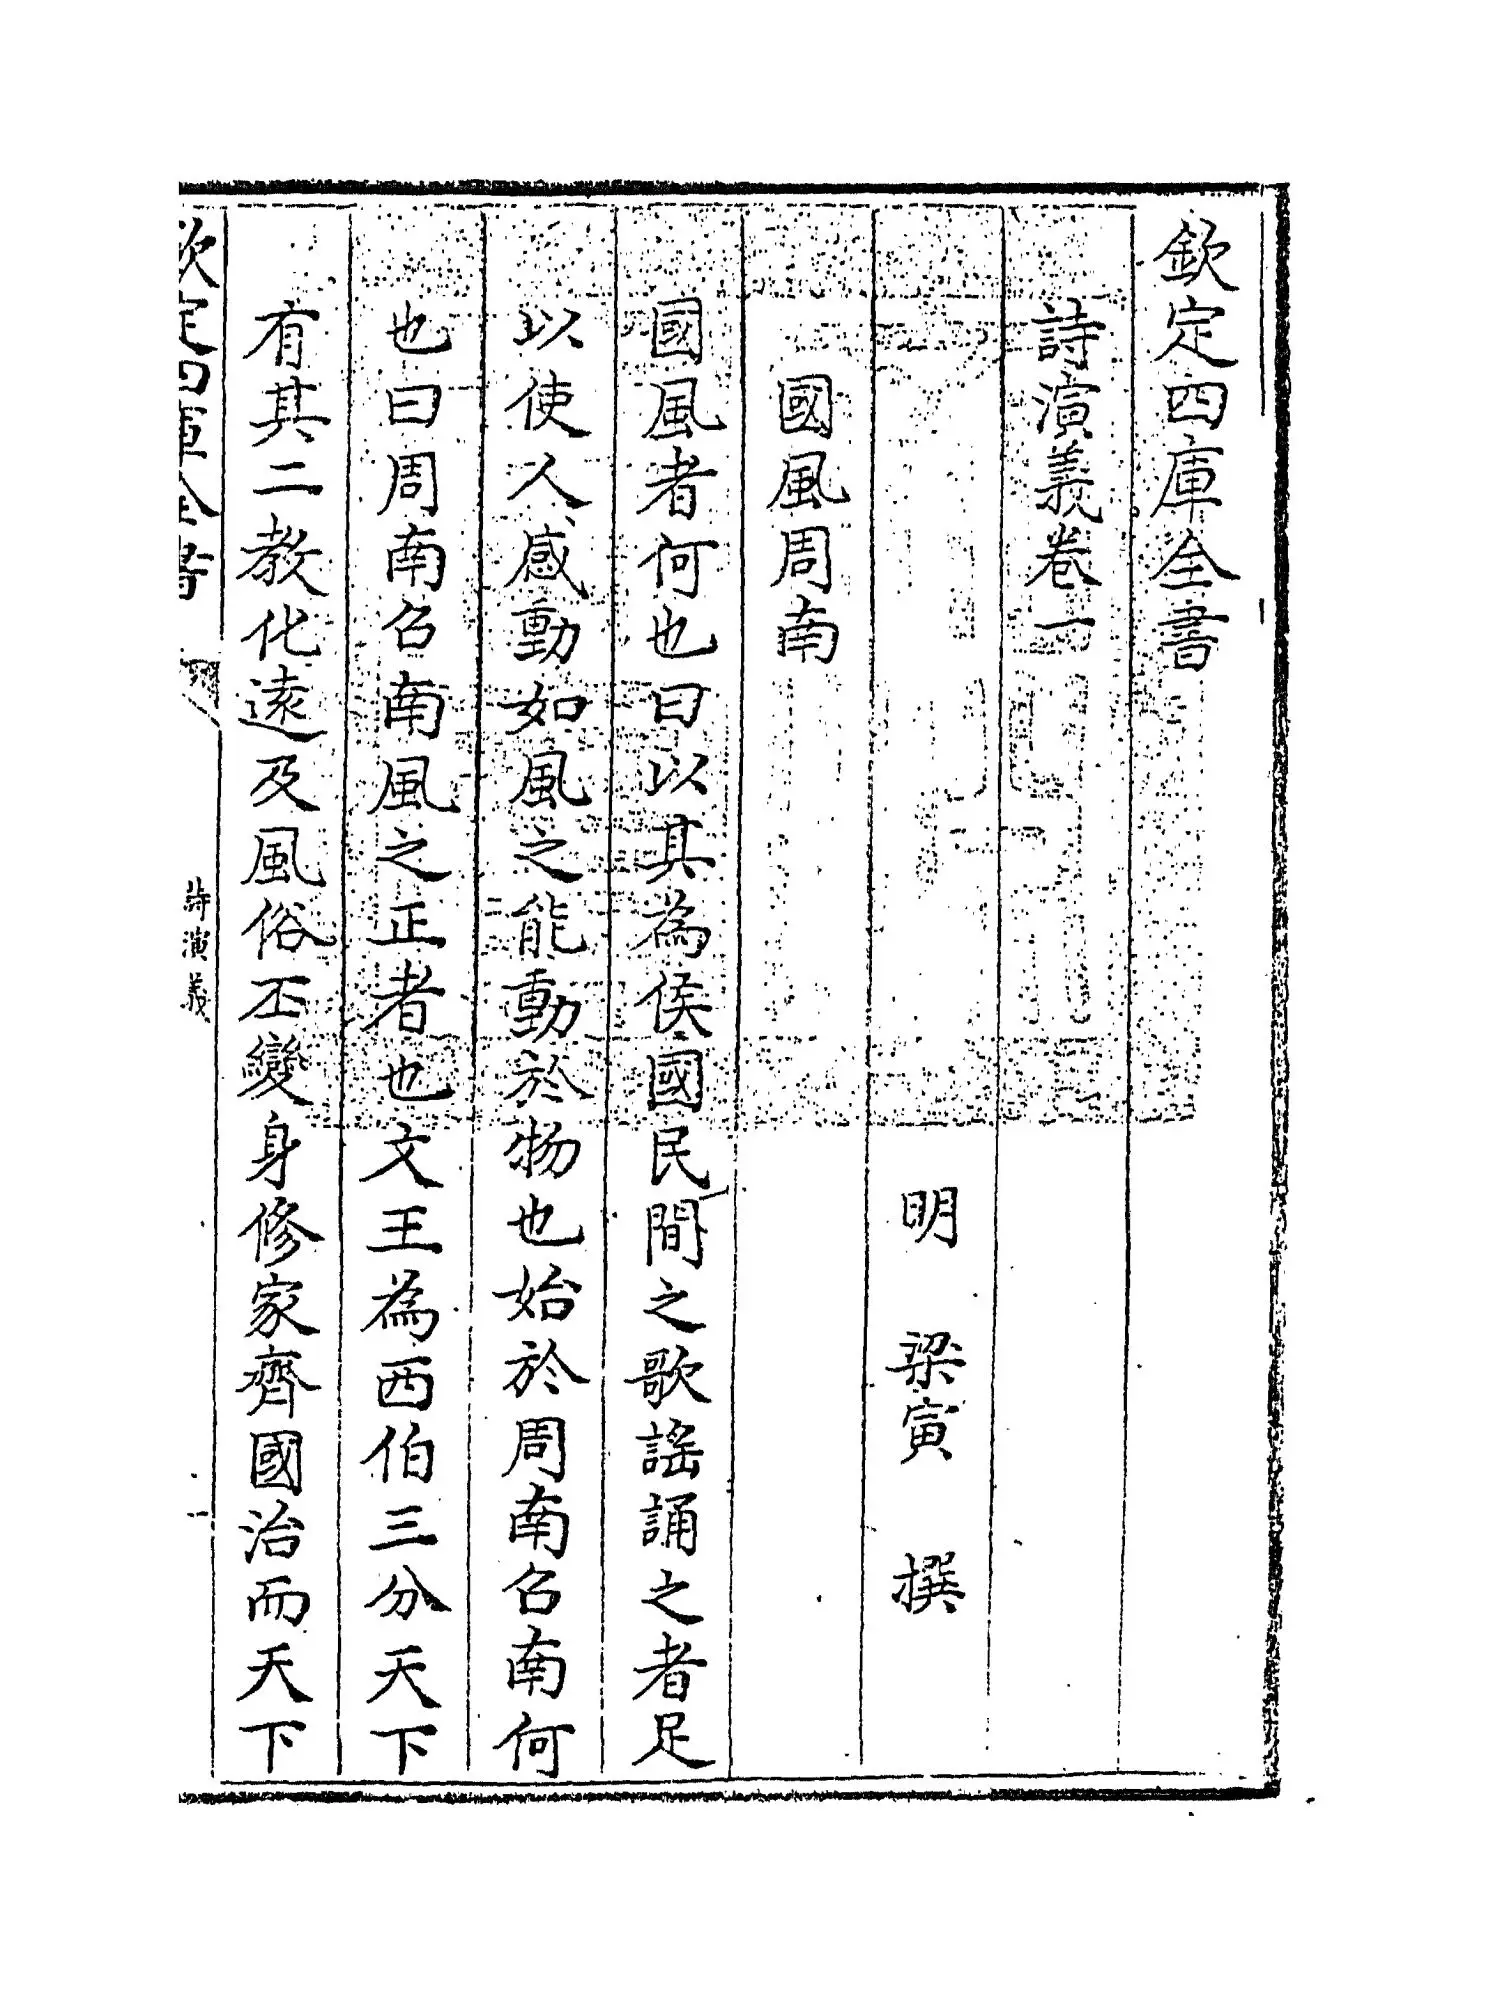 欽定四庫全書
詩演義卷一
明 梁寅 撰
國風周南
國風者何也曰以其為侯國民間之歌謡誦之者足
以使人感動如風之能動於物也始於周南召南何
也曰周南召南風之正者也文王為西伯三分天下
有其二教化遠及風俗丕變身修家齊國治而天下
欽定四庫全書
詩演義